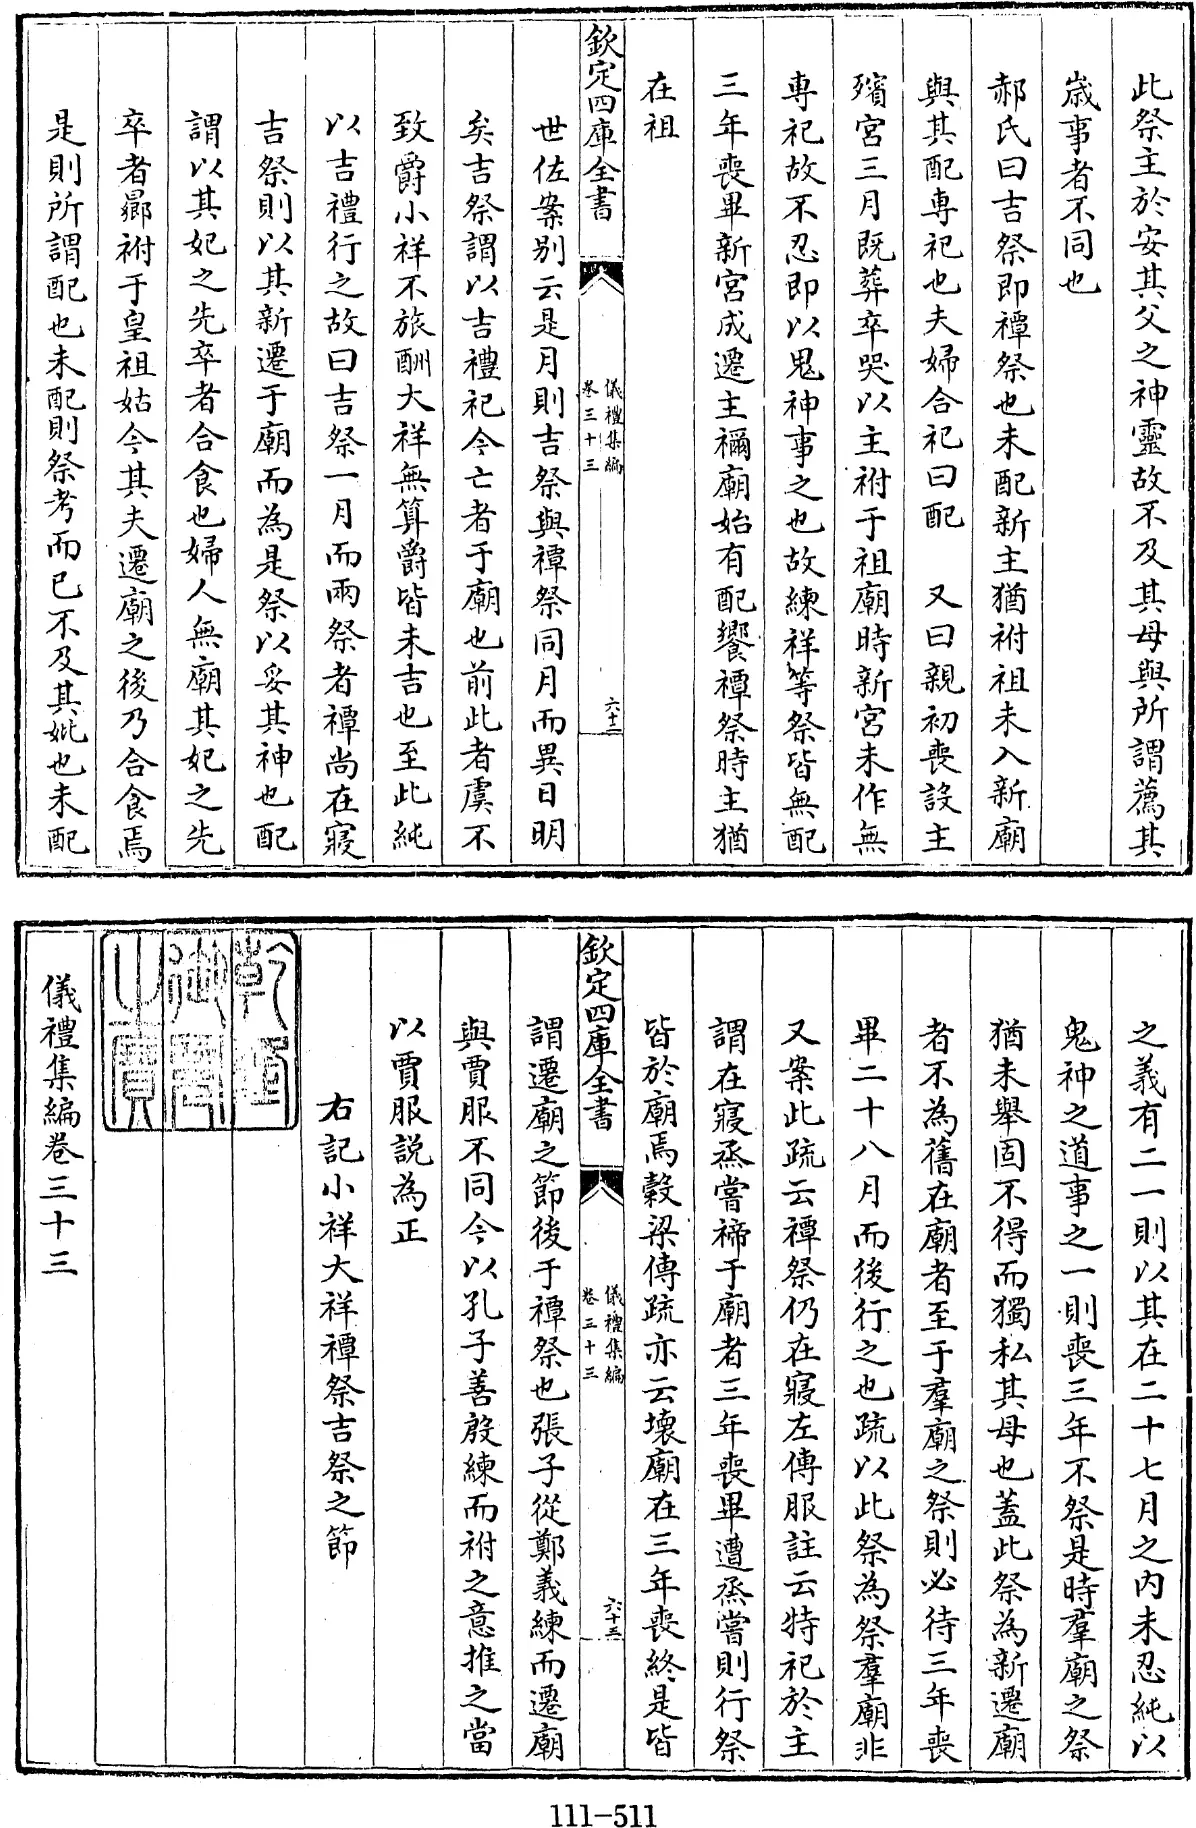 此祭主於安其父之神靈故不及其母與所謂薦其
歲事者不同也
郝氏曰吉祭即禫祭也未配新主猶祔祖未入新廟
與其配專祀也夫婦合祀曰配　又曰親初喪設主
殯宮三月既葬卒哭以主祔于祖廟時新宮未作無
專祀故不忍即以鬼神事之也故練祥等祭皆無配
三年喪畢新宮成遷主禰廟始有配饗禫祭時主猶
在祖
欽定四庫全書
儀禮集編
卷三十三
六十二
世佐案别云是月則吉祭與禫祭同月而異日明
矣吉祭謂以吉禮祀今亡者于廟也前此者虞不
致爵小祥不旅酬大祥無算爵皆未吉也至此純
以吉禮行之故曰吉祭一月而兩祭者禫尚在寢
吉祭則以其新遷于廟而為是祭以妥其神也配
謂以其妃之先卒者合食也婦人無廟其妃之先
卒者曏祔于皇祖姑今其夫遷廟之後乃合食焉
是則所謂配也未配則祭考而已不及其妣也未配
之義有二一則以其在二十七月之內未忍純以
鬼神之道事之一則喪三年不祭是時羣廟之祭
猶未舉固不得而獨私其母也蓋此祭為新遷廟
者不為舊在廟者至于羣廟之祭則必待三年喪
畢二十八月而後行之也疏以此祭為祭羣廟非
又案此疏云禫祭仍在寢左傳服註云特祀於主
謂在寢烝嘗禘于廟者三年喪畢遭烝嘗則行祭
皆於廟焉穀梁傳疏亦云壞廟在三年喪終是皆
欽定四庫全書
儀禮集編
卷三十三
六十三
謂遷廟之節後于禫祭也張子從鄭義練而遷廟
與賈服不同今以孔子善殷練而祔之意推之當
以賈服說為正
右記小祥大祥禫祭吉祭之節
乾隆
御覽
之寶
儀禮集編卷三十三
111-511